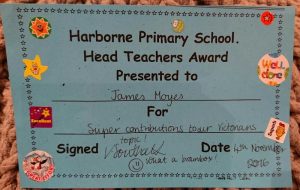 Harborne Primary School.
Head Teachers Award
Presented to
James Moyes
For
Super contributions to our Victorians
topic!
Signed Date 4th November
What a brainbox! 2016
You
done
Excellent